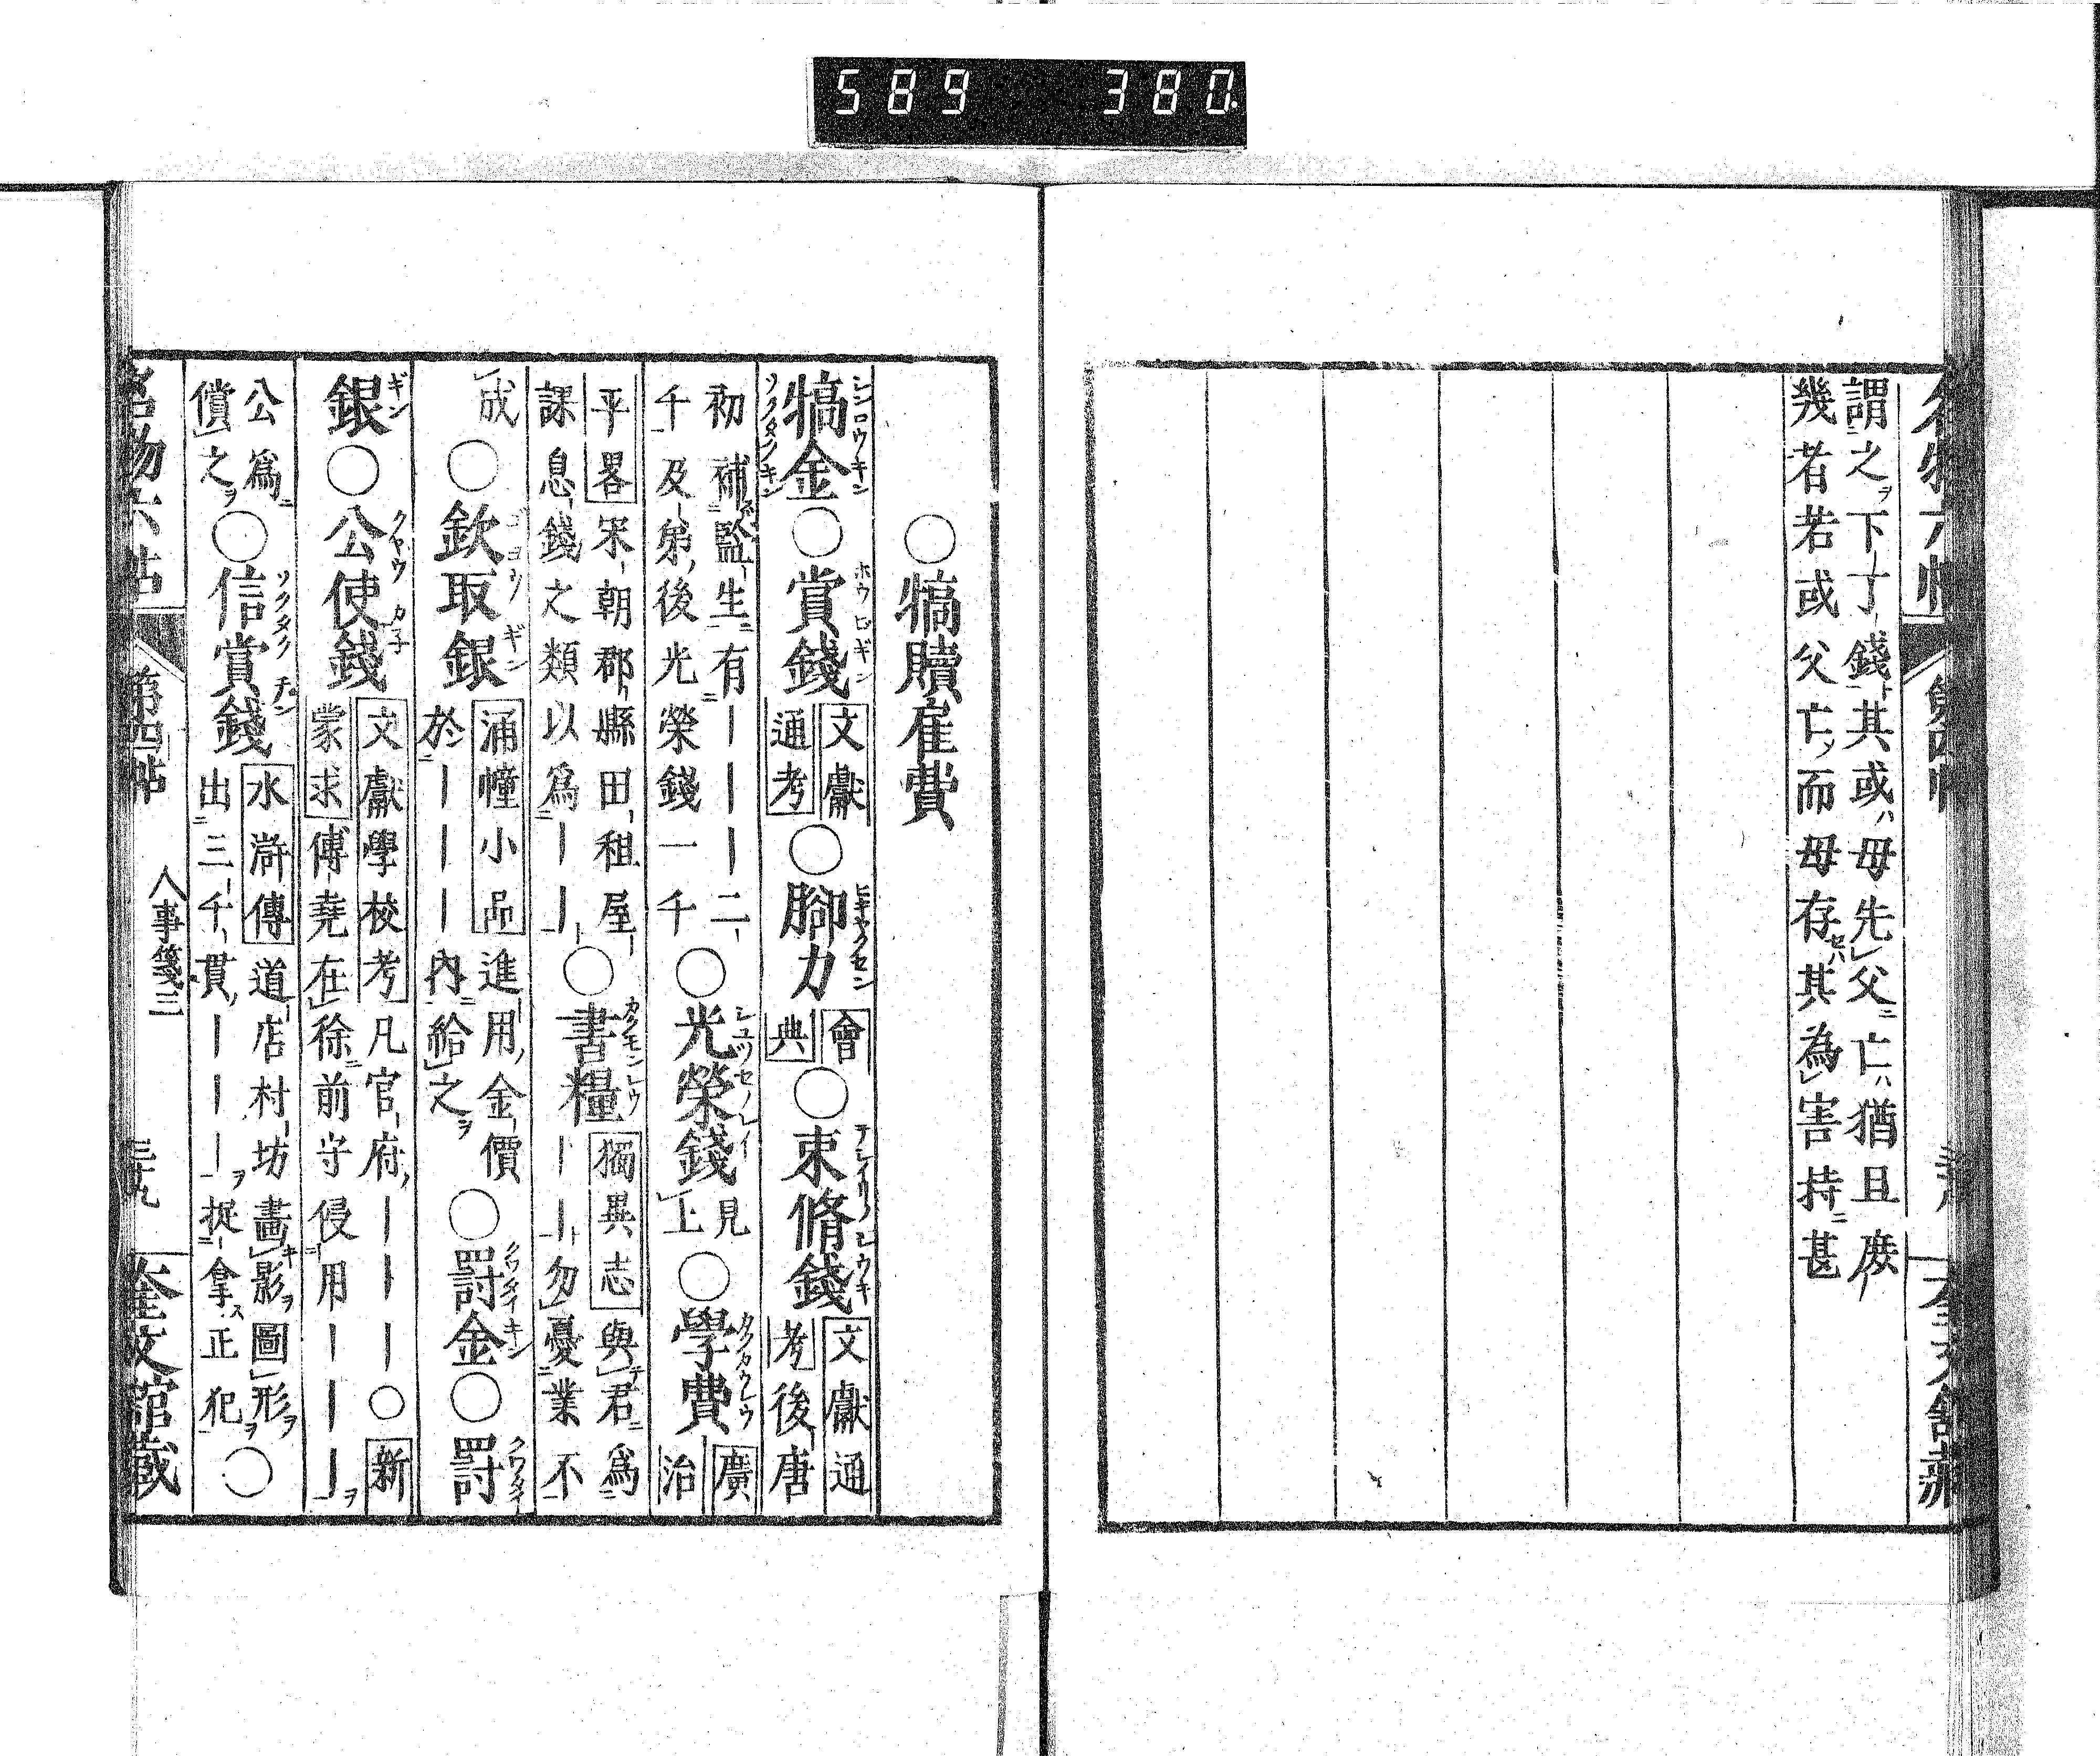 589 380.
謂之下丁錢其或母先父亡猶且庶
幾者若或父亡而母存其為害持甚
○犒贖雇費
犒金○賞錢
文獻
通考
○腳力
會
典
○束脩錢
文獻通
考後唐
初補監生有｜｜｜二
千及第後光榮錢一千
○光榮錢
見
上
○學費
廣
治
平畧宋朝郡縣田租屋
課息錢之類以爲｜｜
○書糧
獨異志與君爲
｜｜勿憂業不
成
○欽取銀
涌幢小品進用金價
於｜｜｜內給之
○罰金○罰
銀○公使錢
文獻學校考凡官府｜｜｜○新
蒙求傳堯在徐前守侵用｜｜｜
公爲
償之
○信賞錢
水滸傳道店村坊畫影圖形
出三千貫｜｜｜捉拿正犯
○
名物六帖 第四帖 人事箋三 三十九 奎文館藏